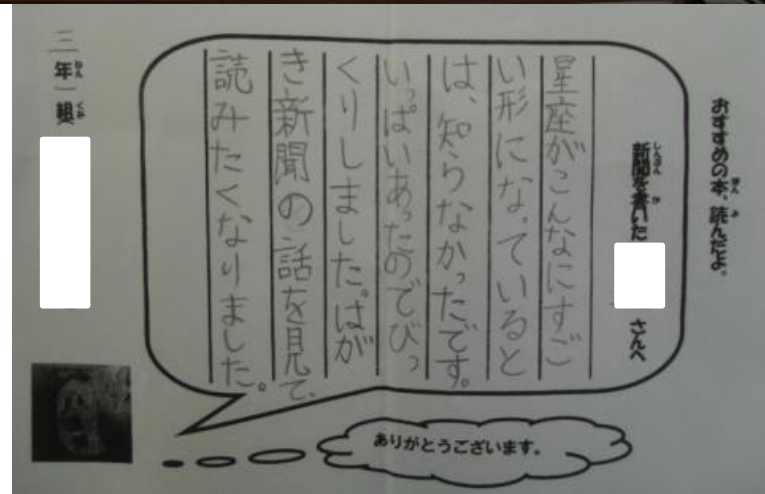 おすすめの本、読んだよ。
新聞を書いた
さんへ
星座がこんなにすご
い形になっていると
は、知らなかったです。
いっぱいあったのでびっ
くりしました。はが
き新聞の話を見て、
読みたくなりました。
三年一組
ありがとうございます。